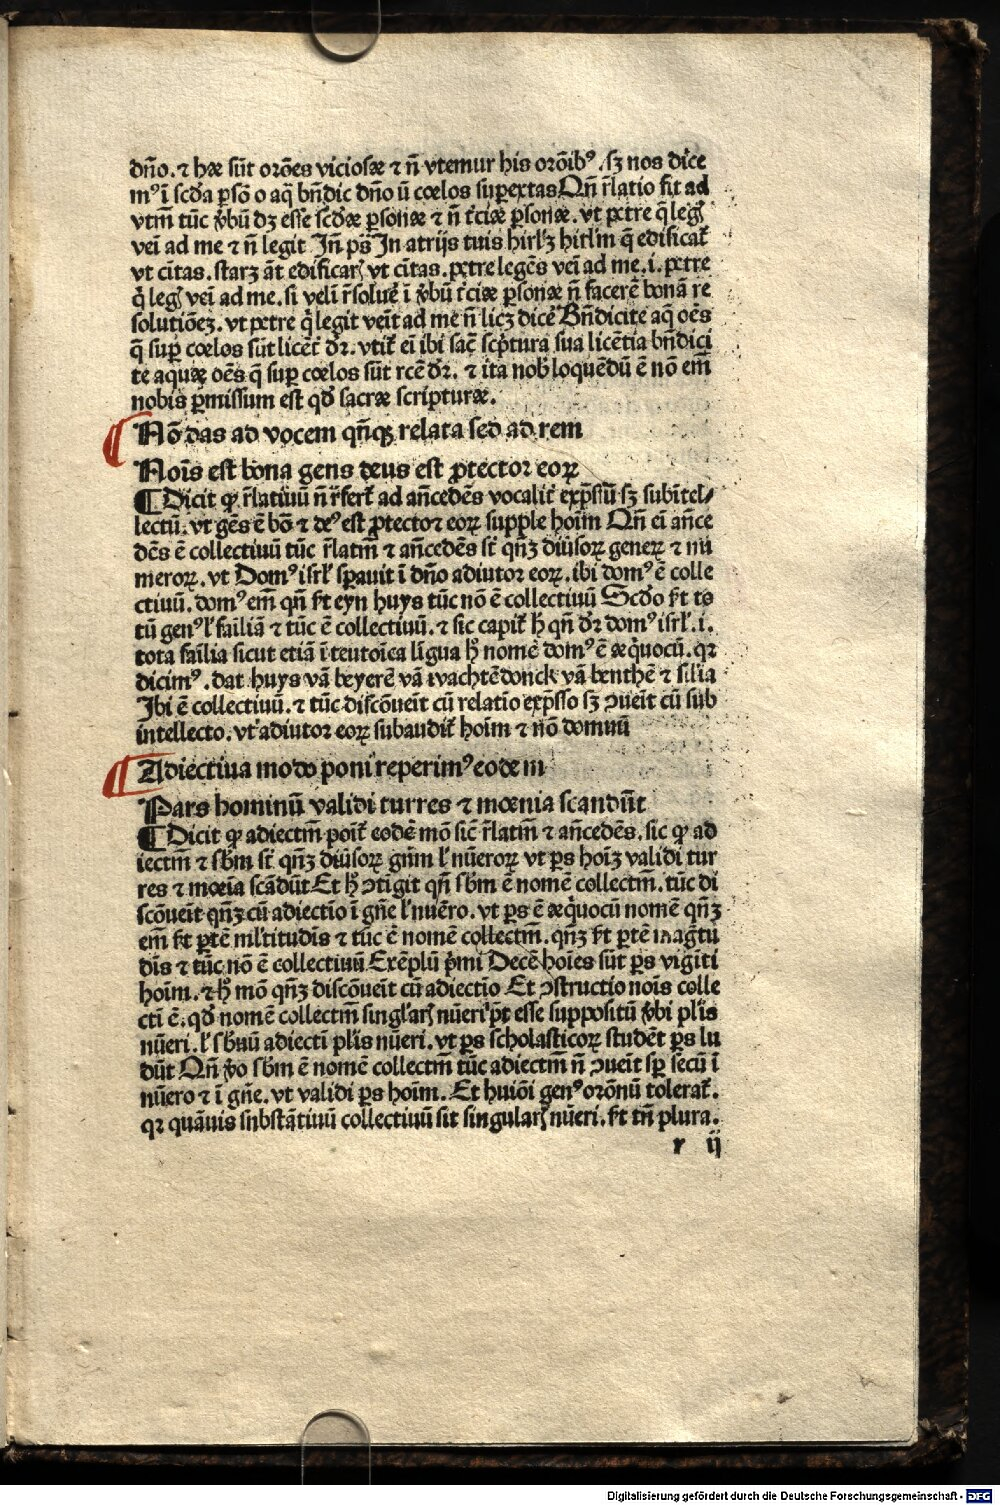 dn̄o. ⁊ hæ sūt orōes viciosæ ⁊ n̄ vtemur his orōibꝰ. sꝫ nos dice
mꝰ ī scd̄a ꝑsōo aq̄ bn̄dic dn̄o ū cœlos suꝑextas Qn̄ r̄latio fit ad
vtm̄ tūc v̄bū dꝫ esse scd̄æ ꝑsonæ ⁊ n̄ tciæ ꝑsonæ. vt petre q̄ legꝭ
vei ad me ⁊ n̄ legit In̄ ps̄ In atrijs tuis hirl'ꝫ hirl'm q̄ edificat̄
vt ciītas. starꝫ āt edificarꝭ vt ciītas. petre legēs vei ad me. i. petre
q̄ legꝭ vei ad me. si velī r̄soluē ī v̄bū tciæ ꝑsonæ n̄ facerē bonā re
solutiōeꝫ. vt petre q̄ legit veīt ad me n̄ licꝫ dicē Bn̄dicite aq̄ oēs
q̄ suꝑ cœlos sūt licēt dr̄. vtiꝉ ei ibi sac̄ sc̄ptura sua licētia bn̄dici
te aquæ oēs q̄ suꝑ cœlos sūt rcē dr̄. ⁊ ita nob̄ loquēdū ē nō em̄
nobis ꝑmissum est qd̄ sacræ scripturæ.
Nō das ad vocem qn̄qꝫ relata sed ad rem
Nois est bona gens deus est ꝓtector eoꝝ
¶ Dicit ꝙ r̄latiuū n̄ r̄fert̄ ad an̄cedēs vocalit̄ exp̄ssū sꝫ subītel/
lectū. vt gēs ē bō ⁊ deꝰ est ꝓtector eoꝝ supple hoīm Qn̄ ei an̄ce
dēs ē collectiuū tūc r̄latm̄ ⁊ an̄cedēs st̄ qn̄ꝫ diūsoꝝ geneꝝ ⁊ nu
meroꝝ. vt Domꝰ isrl' sꝑauit ī dn̄o adiutor eoꝝ. ibi domꝰ ē colle
ctiuū. domꝰ em̄ qn̄ st̄ eyn huys tūc nō ē collectiuū Scd̄o st̄ to
tū genꝰ l' fāiliā ⁊ tūc ē collectiuū. ⁊ sic capit̄ hꝭ qn̄ dr̄ domꝰ isrl'. i.
tota fāilia sicut etiā ī teutoīca līgua hꝭ nomē domꝰ ē æq̄uocū. qꝛ
dicimꝰ. dat huys vā beyerē vā wachtēdonck vā benthē ⁊ silia
Ibi ē collectiuū. ⁊ tūc discōueīt cū relatīo exp̄sso sꝫ ↄueīt cū sub
intellecto. vt adiutor eoꝝ subaudit̄ hoīm ⁊ nō domuū
Adiectiua modo poni reperimꝰ eodem
Pars hominū validi turres ⁊ mœnia scandūt
¶ Dicit ꝙ adiectm̄ poīt̄ eodē mō sic̄ r̄latm̄ ⁊ an̄cedēs. sic ꝙ ad
iectm̄ ⁊ sb̄m st̄ qn̄ꝫ diūsoꝝ gn̄m l' nūeroꝝ vt ps hoīꝫ validi tur
res ⁊ mœīa scādūt Et hꝭ ↄtīgit qn̄ sb̄m ē nomē collectm̄. tūc di
scōueīt qn̄ꝫ cū adiectīo ī gn̄e l' nūero. vt ps ē æq̄uocū nomē qn̄ꝫ
em̄ st̄ ꝑtē ml'titudīs ⁊ tūc ē nomē collectm̄. qn̄ꝫ st̄ ꝑtē magn̄tu
dīs ⁊ tūc nō ē collectiuū Exēplū p̄mi Decē hoīes sūt ps vigīti
hoīm. ⁊ hꝭ mō qn̄ꝫ discōueīt cū adiectīo Et ↄstructio nois colle
cti ē. qd̄ nomē collectm̄ singl'arꝭ nūeri p̄t esse suppositū v̄bi pl'is
nūeri. l' sb̄uū adiecti pl'is nūeri. vt ps scholasticoꝝ studēt ps lu
dūt Qn̄ v̄o sb̄m ē nomē collectm̄ tūc adiectm̄ n̄ ↄueīt sꝑ secū ī
nūero ⁊ ī gn̄e. vt validi ps hoīm. Et huiōi genꝰ orōnū tolerat̄.
qꝛ quāuis substātiuū collectiuū sit singularꝭ nūeri. st̄ tn̄ plura.
r ij
Digitalisierung gefördert durch die Deutsche Forschungsgemeinschaft - DFG